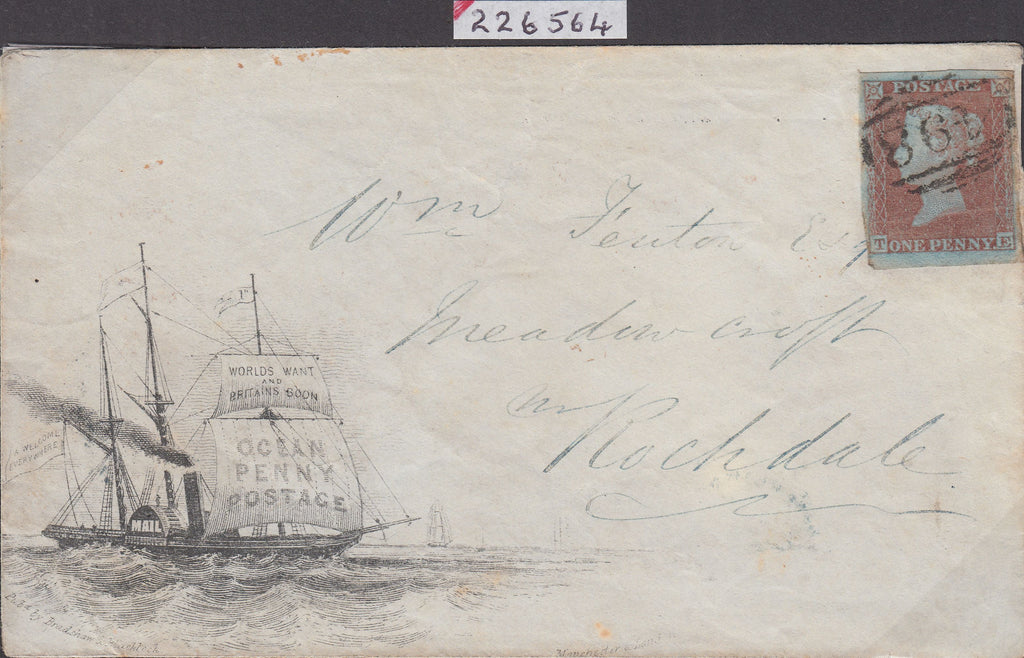 226564
POSTAGE
86
T ONE PENNY E
Wm Fenton Esq
Meadow croft
nr Rochdale
1D
WORLDS WANT
AND
BRITAINS BOON
OCEAN
PENNY
POSTAGE
A WELCOME
EVERYWHERE
MAIL
by Bradshaw & Blacklock
Manchester